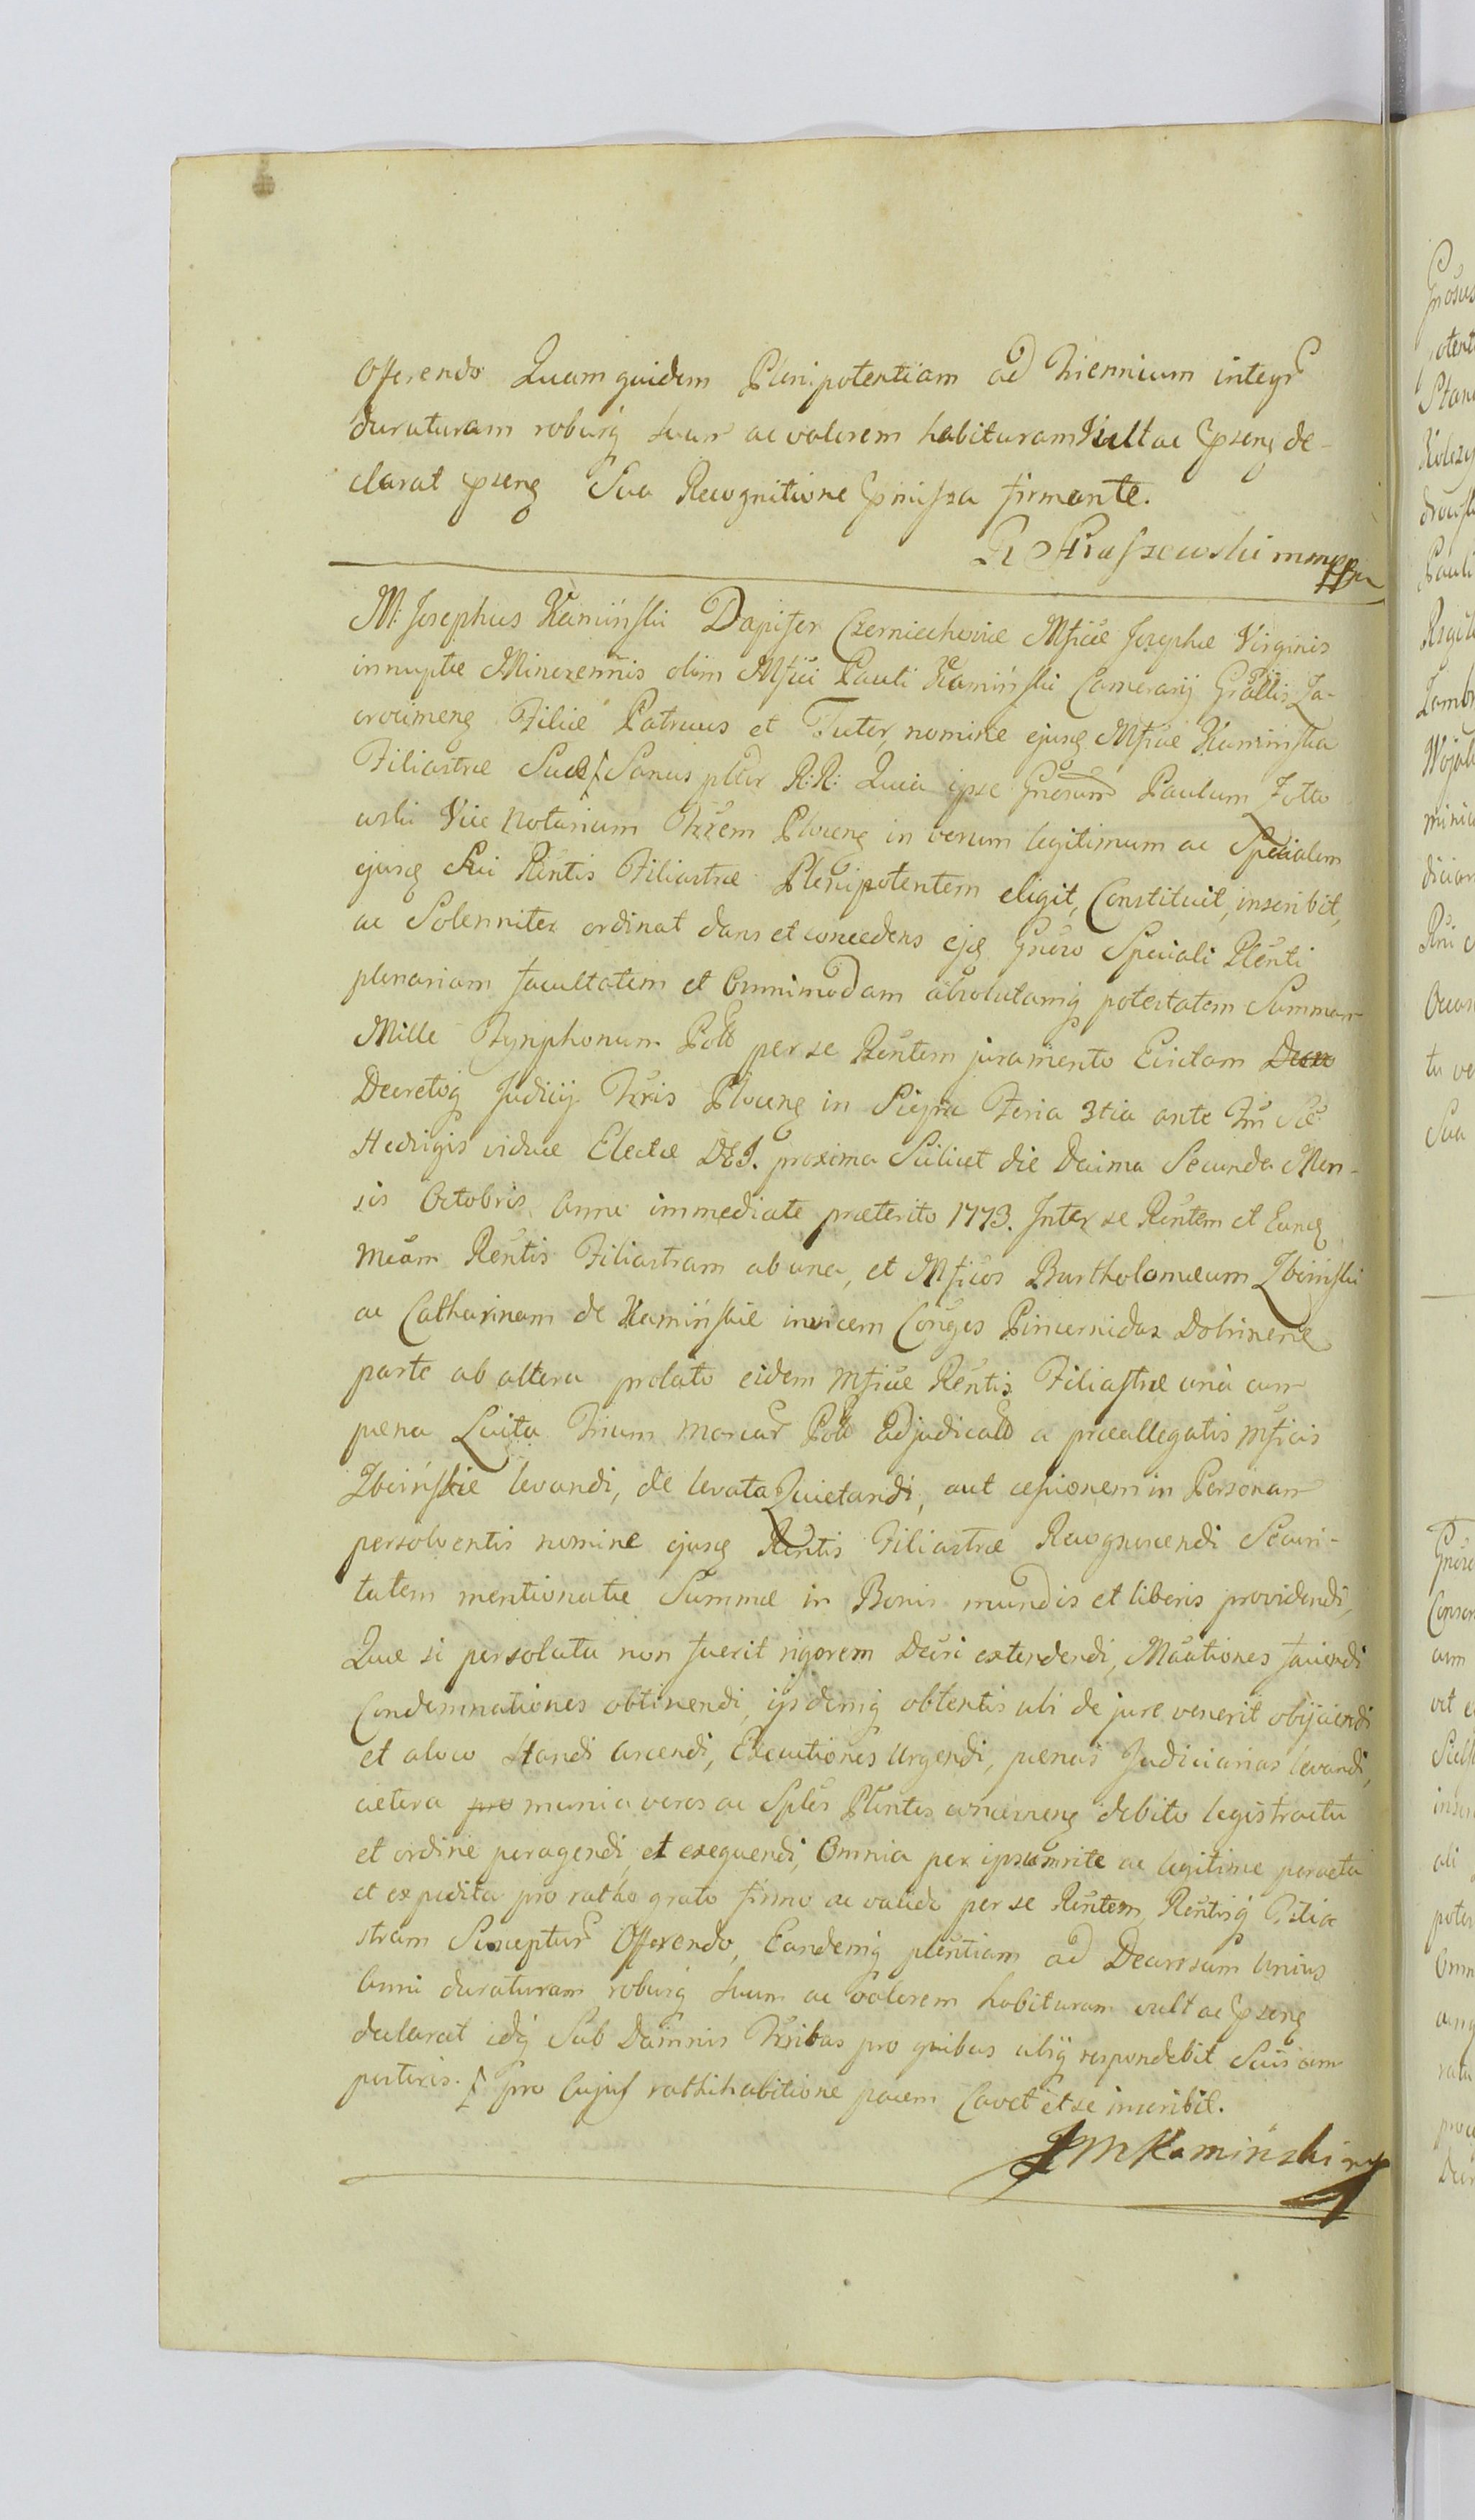 Offerendo Quamquidem Plenipotentiam ad Triennium integr
duraturam roburq suum ac valorem habituram Vult ac pseng de-
clarat pseng Sua Recognitione pmissa firmante.
R Kraszewski mmppa
M: Josephus Kamiński Dapifer Czerniechoviæ Mficæ Josephæ Virginis
innuptæ Minorennis olim Mfici Pauli Kamiński Camerarij Grallis Za-
crocimeng Filiæ Patruus et Tutor, nomine ejusq Mficæ Kaminska
Filiastræ Suæ Sanus pltr R:R: Quia ipse Gnosum Paulum Zotto
wski Vice Notarium Trrem Ploceng in verum legitimum ac Specialem
ejusq Sui Rentis Filiastræ Plenipotentem eligit, Constituit, inscribit,
ac Solenniter ordinat dans et concedens ejq Gnoso Speciali Plenti
plenariam facultatem et Omnimodam absolutamq potestatem Summam
Mille Tynphonum Poll per se Rentem juramento Evictam
Decretoq Judicij Trris Ploceng in Sierpia Feria 3tia ante Fm Sæ
Hedvigis viduæ Electæ DEI. proxima Scilicet die Decima Secunda Men-
sis Octobris Anno immediate præterito 1773. Inter se Rentem et Eang
Mcam Rentis Filiastram ab una, et Mficos Bartholomæum Zbiński
ac Catharinam de Kamińskie invicem Conges Pincernidas Dobrinens
parte ab altera prolato eidem Mficæ Rentis Filiastræ una cum
pæna Luita Trium Marcar Poll Adjudicatt a præallegatis Mficis
Zbińskie levandi, de levata Quietandi, aut cessionem in Personam
persolventis nomine ejusq Rentis Filiastræ Recognoscendi Securi-
tatem mentionatæ Summæ in Bonis mundis et liberis providendi,
Quæ si persoluta non fuerit rigorem Decri extendendi, Maationes faciendi
Condemnationes obtinendi, ijsdemq obtentis ubi de jure venerit obijciendi
et a loco Standi arcendi, Executiones Urgendi, pænas Judiciarias levandi,
cætera pro munia veros ac Sples Plentes concerneng debito legis tractu
et ordine peragendi, et exequendi, Omnia per ipsum rite ac legitime peracta
et expedita pro ratho grato firmo ac valido per se Rentem, Rentisq Filia
stram Susceptur Offerendo, Eandemq plentiam ad Decursum Unius
Anni duraturam roburq suum ac valorem habituram vult ac pseng
declarat idq Sub Damnis Trribus pro quibus ubiq respondebit Suis cum
posteris. pro Cujus rathihabitione pacem Cavet et se inscribit.
JM Kamiński mp